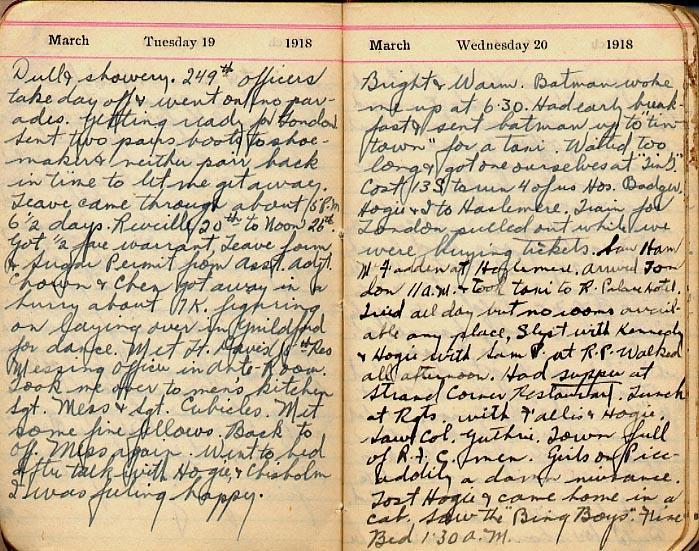 March Tuesday 19 1918
Dull & showery. 249th officers
take day off & went on no par-
ades. Getting ready for London
Sent two pairs boots to shoe-
maker & neither pair back
in time to let me get away.
Leave came through about 6 P.M
6 1/2 days. Reveille 20th to Noon 26th.
Got 1/2 fare warrant, Leave form
& Sugar Permit from asst. adjt.
Chown & Chen got away in a
hurry about 7K. figuring
on laying over in Guildford
for dance. Met Lt. Davies Res
Messing officer in ante-Room.
Took me over to men's kitchen
Sgt. Mess & Sgt. Cubicles. Met
some fine fellows. Back to
off. Mess again. Went to bed
after talk with Hogie, & Chisholm
I was feeling happy.
March Wednesday 20 1918
Bright & Warm. Batman woke
me up at 6.30. Had early break-
fast & sent batman up to "tin
town" for a taxi. Waited too
long & got one ourselves at "Tin S".
Cost 13S to run 4 of us Hos. Badgw.
Hogie & I to Haslemere. Train for
London pulled out while we
were buying tickets. Saw Ham
McFadden at Haslemere, arrived Lon
don 11 A.M. & took taxi to R. Palace Hotel.
Tried all day but no rooms avail-
able any place, Slept with Kennedy
& Hogie with Sam P. at R.P. Walked
all afternoon. Had supper at
Strand Corner Restaurant. Lunch
at Rgts. with Fallis & Hogie.
Saw Col. Guthrie. Town full
of R.F.C. men. Girls on Picc-
addily a darn nuisance.
Lost Hogie & came home in a
cab. Saw the "Bing Boys". Fine
Bed 1.30 A.M.